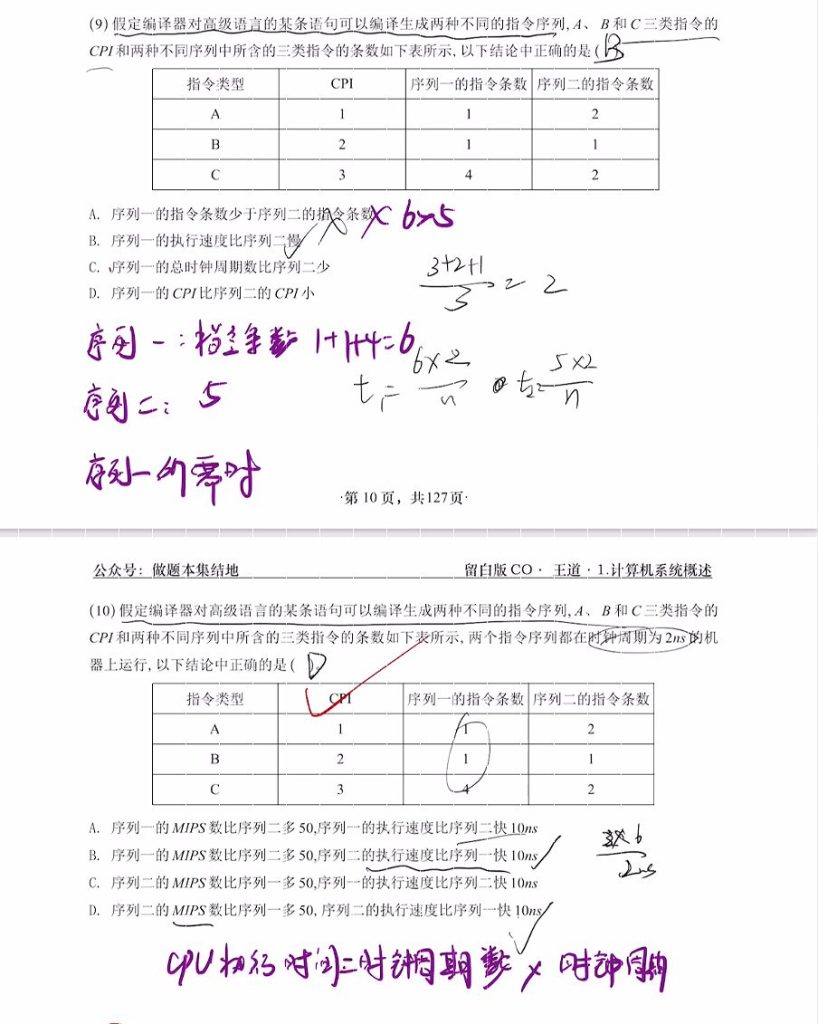 (9) 假定编译器对高级语言的某条语句可以编译生成两种不同的指令序列, A、B 和 C 三类指令的
CPI 和两种不同序列中所含的三类指令的条数如下表所示, 以下结论中正确的是 ( B
指令类型 CPI 序列一的指令条数 序列二的指令条数
A 1 1 2
B 2 1 1
C 3 4 2
A. 序列一的指令条数少于序列二的指令条数 × 6>5
B. 序列一的执行速度比序列二慢
C. 序列一的总时钟周期数比序列二少
D. 序列一的 CPI 比序列二的 CPI 小
3+2+1
3
= 2
序列一:指令条数 1+1+4=6
t₁= 6×2
n
t₂= 5×2
n
序列二: 5
序列一的需时
·第 10 页, 共127页·
公众号: 做题本集结地 留白版 CO · 王道 · 1.计算机系统概述
(10) 假定编译器对高级语言的某条语句可以编译生成两种不同的指令序列, A、B 和 C 三类指令的
CPI 和两种不同序列中所含的三类指令的条数如下表所示, 两个指令序列都在时钟周期为 2ns 的机
器上运行, 以下结论中正确的是 ( D
指令类型 CPI 序列一的指令条数 序列二的指令条数
A 1 1 2
B 2 1 1
C 3 4 2
A. 序列一的 MIPS 数比序列二多 50,序列一的执行速度比序列二快 10ns
B. 序列一的 MIPS 数比序列二多 50,序列二的执行速度比序列一快 10ns
C. 序列二的 MIPS 数比序列一多 50,序列一的执行速度比序列二快 10ns
D. 序列二的 MIPS 数比序列一多 50, 序列二的执行速度比序列一快 10ns
6
2ns
CPU执行时间=时钟周期数×时钟周期